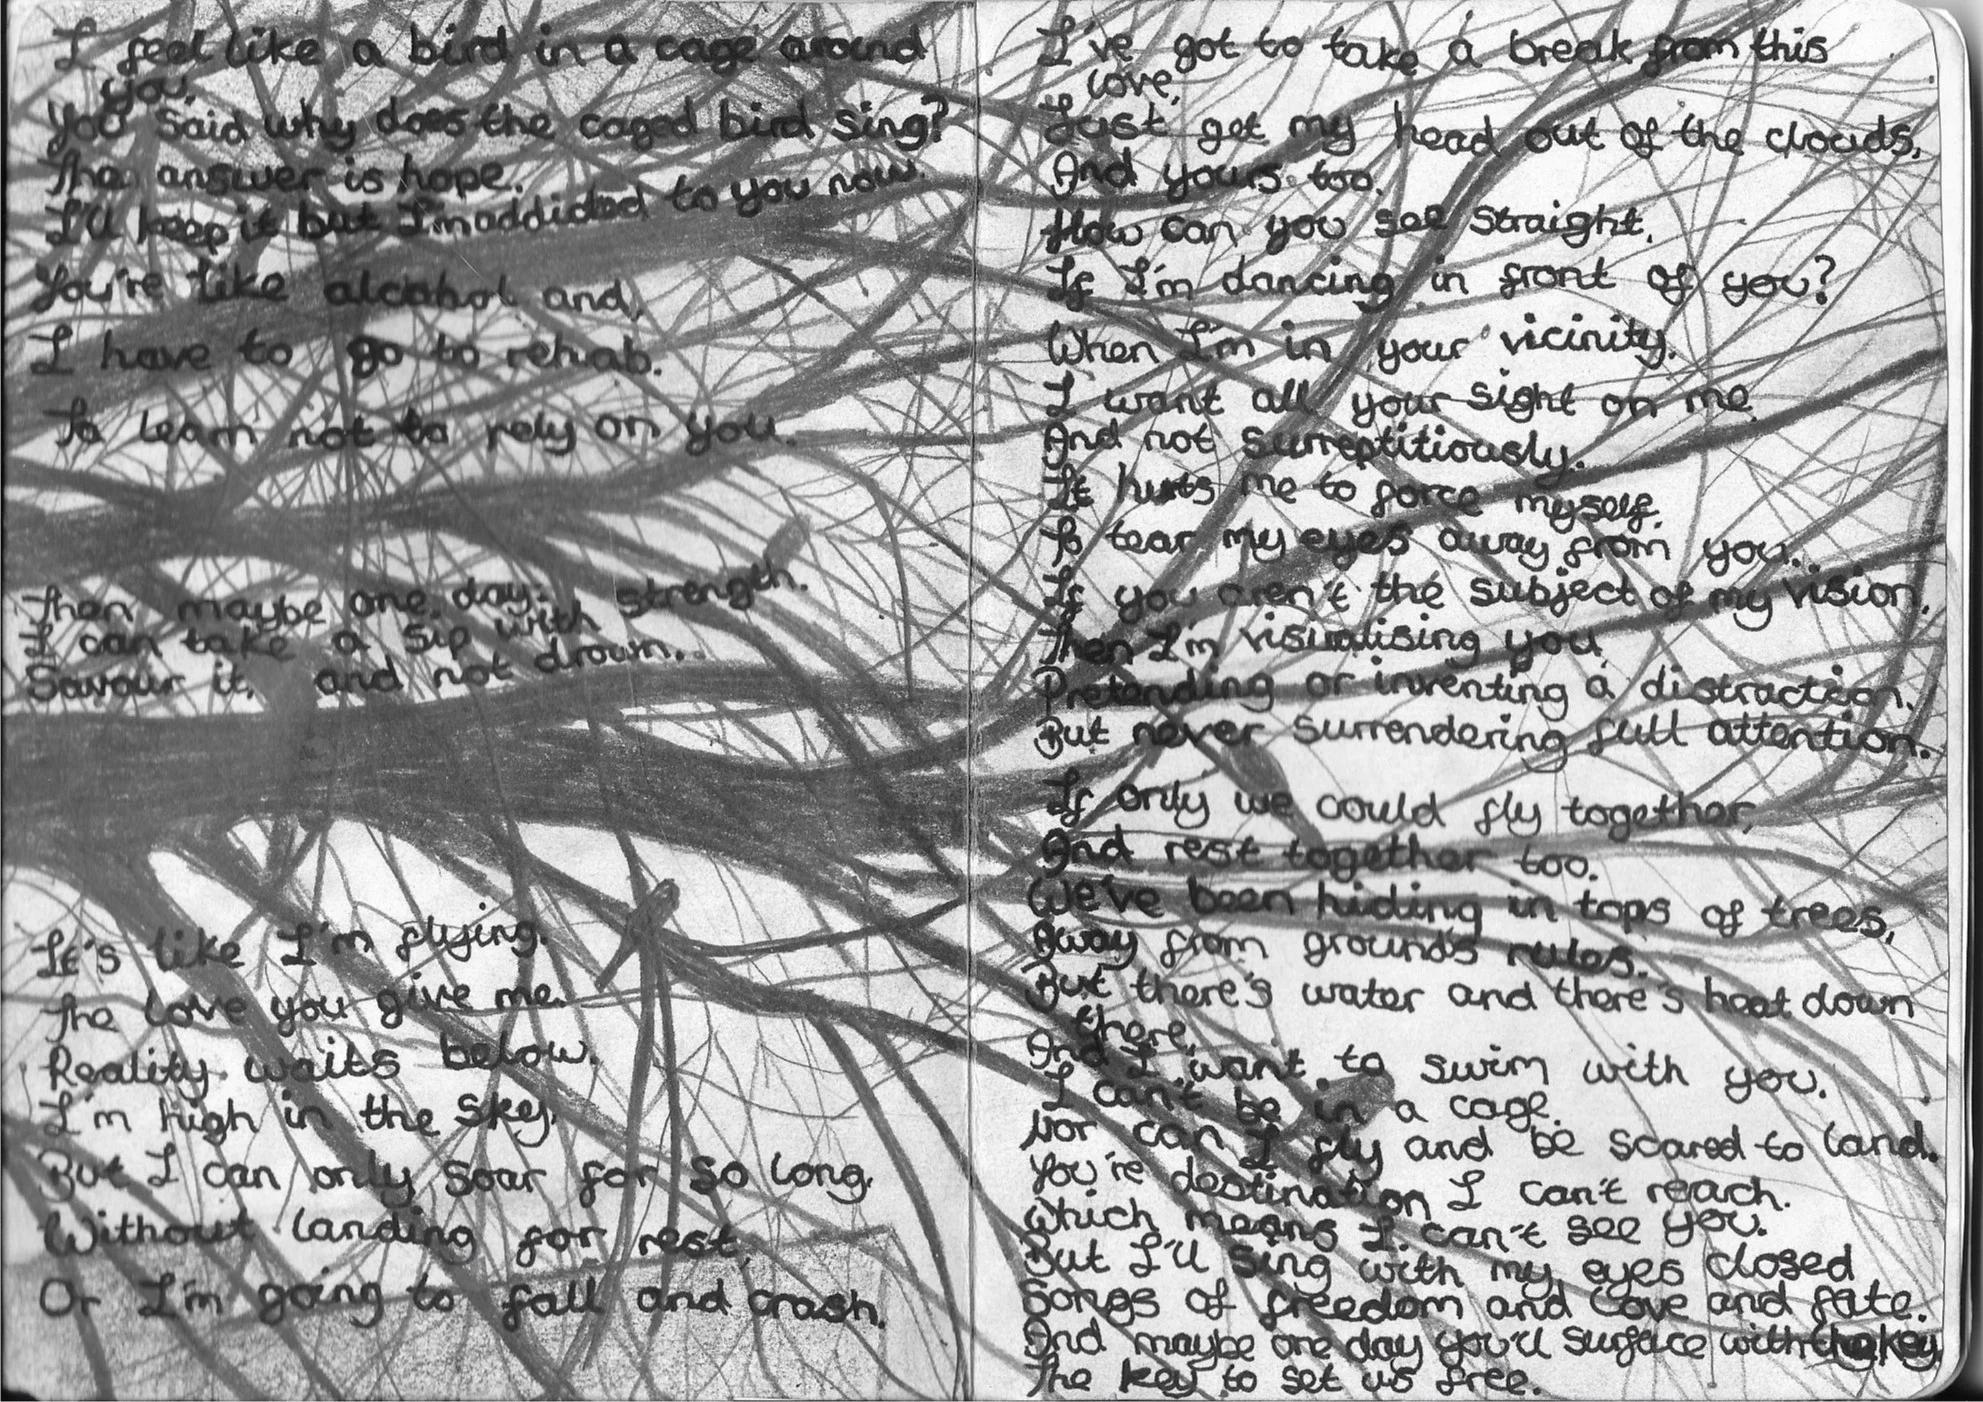 I feel like a bird in a cage around
you,
You said why does the caged bird sing?
The answer is hope.
I'll keep it but I'm addicted to you now.
You're like alcohol and,
I have to go to rehab.
To learn not to rely on you.
Then maybe one day,
I can take a sip with strength.
Savour it, and not drown..
It's like I'm flying.
The love you give me.
Reality waits below.
I'm high in the sky,
But I can only soar for so long,
Without landing for rest,
Or I'm going to fall and crash.
I've got to take a break from this
love,
Just get my head out of the clouds,
And yours too.
How can you see straight,
If I'm dancing in front of you?
When I'm in your vicinity,
I want all your sight on me
And not surreptitiously.
It hurts me to force myself,
To tear my eyes away from you..
If you aren't the subject of my vision,
Then I'm visualising you
Pretending or inventing a distraction,
But never surrendering full attention.
If only we could fly together,
And rest together too.
We've been hiding in tops of trees,
Away from grounds rules.
But there's water and there's heat down
there,
And I want to swim with you.
I can't be in a cage.
Nor can I fly and be scared to land.
You're destination I can't reach.
Which means I can't see you.
But I'll sing with my eyes closed
Songs of freedom and love and fate.
And maybe one day you'll surface with the key
The key to set us free.